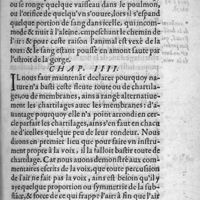 ou se ronge quelque vaisseau dans le poulmon,
ou l'orifice de quelqu'vn s'ouure, lors il s'espand
quelque portion de sang dans icelle, qui incom-
mode & nuit à l'aleine, empeschant le chemin de
l'air: & pour ceste raison l'animal est vexé de la
toux: & le sang estant poussé en amont saute par
l'estroit de la gorge.
CHAP. IIII.
IL nous faut maintenãt declarer pourquoy na-
ture n'a basti ceste fleute toute ou de chartila-
ges, ou de membranes, ains a rangé alternatiuemẽt
les chartilages auec les membranes: d'a-
uantage pourquoy elle n'a point arrondi en cer-
cle parfait les chartilages, ains s'en faut en chacu-
ne d'icelles quelque peu de leur rondeur. Nous
disons en premier lieu que pour faire vn instru-
ment propre à la voix, il la falloit bastir toute de
chartilage. Car nous auons demonstré aux com-
mentaires escrits de la voix, que toute percussion
de l'air ne fait pas la voix, ains est besoin qu'il y
aye quelque proportion ou symmetrie de la sub-
stance, & force de ce qui frappe à l'air: à fin que l'air